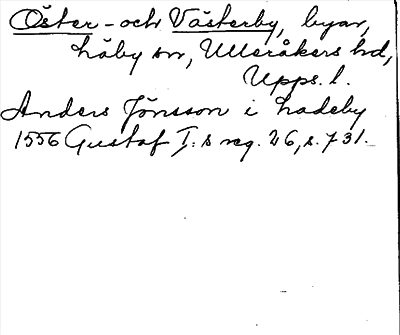 Öster- och Västerby, byar,
Läby sn, Ulleråkers hd,
Upps. l.
Anders Jönsson i Ladeby
1556 Gustaf I:s reg. 26, s. 731.